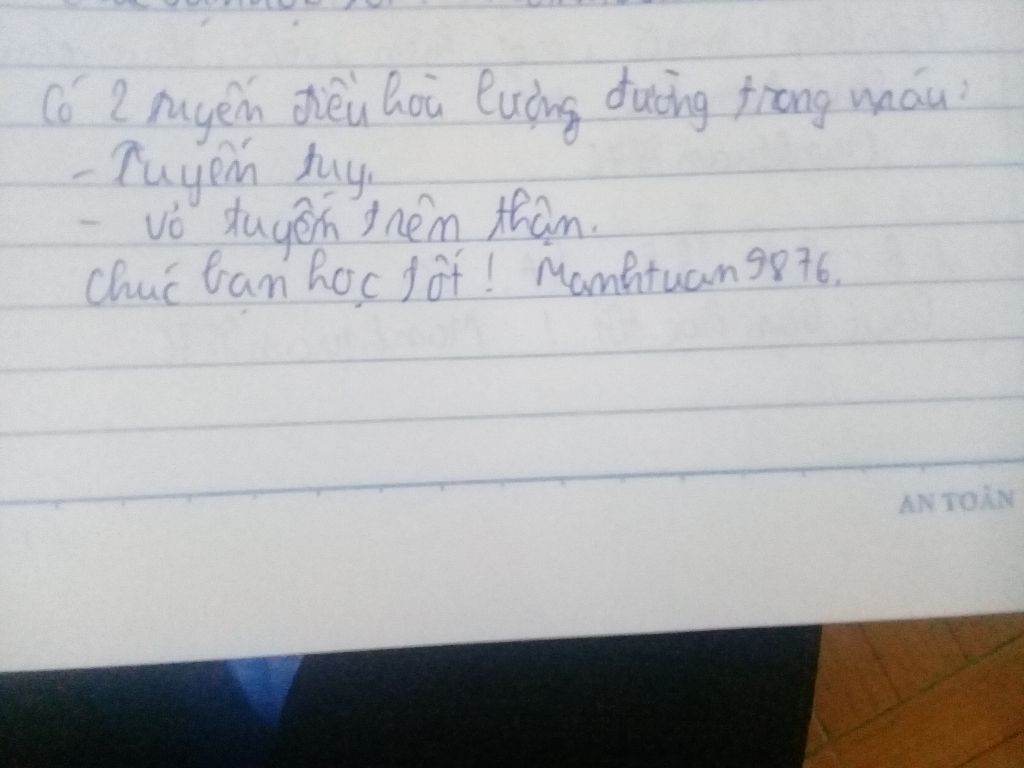 Có 2 tuyến điều hoà lượng đường trong máu:
- Tuyến tuỵ.
- Vỏ tuyến trên thận.
Chúc bạn học tốt! Manhtuan9876.
AN TOÀN